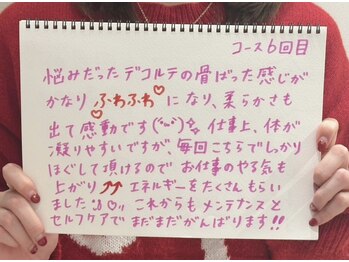 コース6回目
悩みだったデコルテの骨ばった感じが
かなり ふわふわ♡ になり、柔らかさも
出て感動です(*'ω'*)✨ 仕事上、体が
凝りやすいですが、毎回こちらでしっかり
ほぐして頂けるので お仕事のやる気も
上がり⤴⤴ エネルギーをたくさんもらい
ました♡〟 これからも メンテナンスと
セルフケアで まだまだがんばります!!